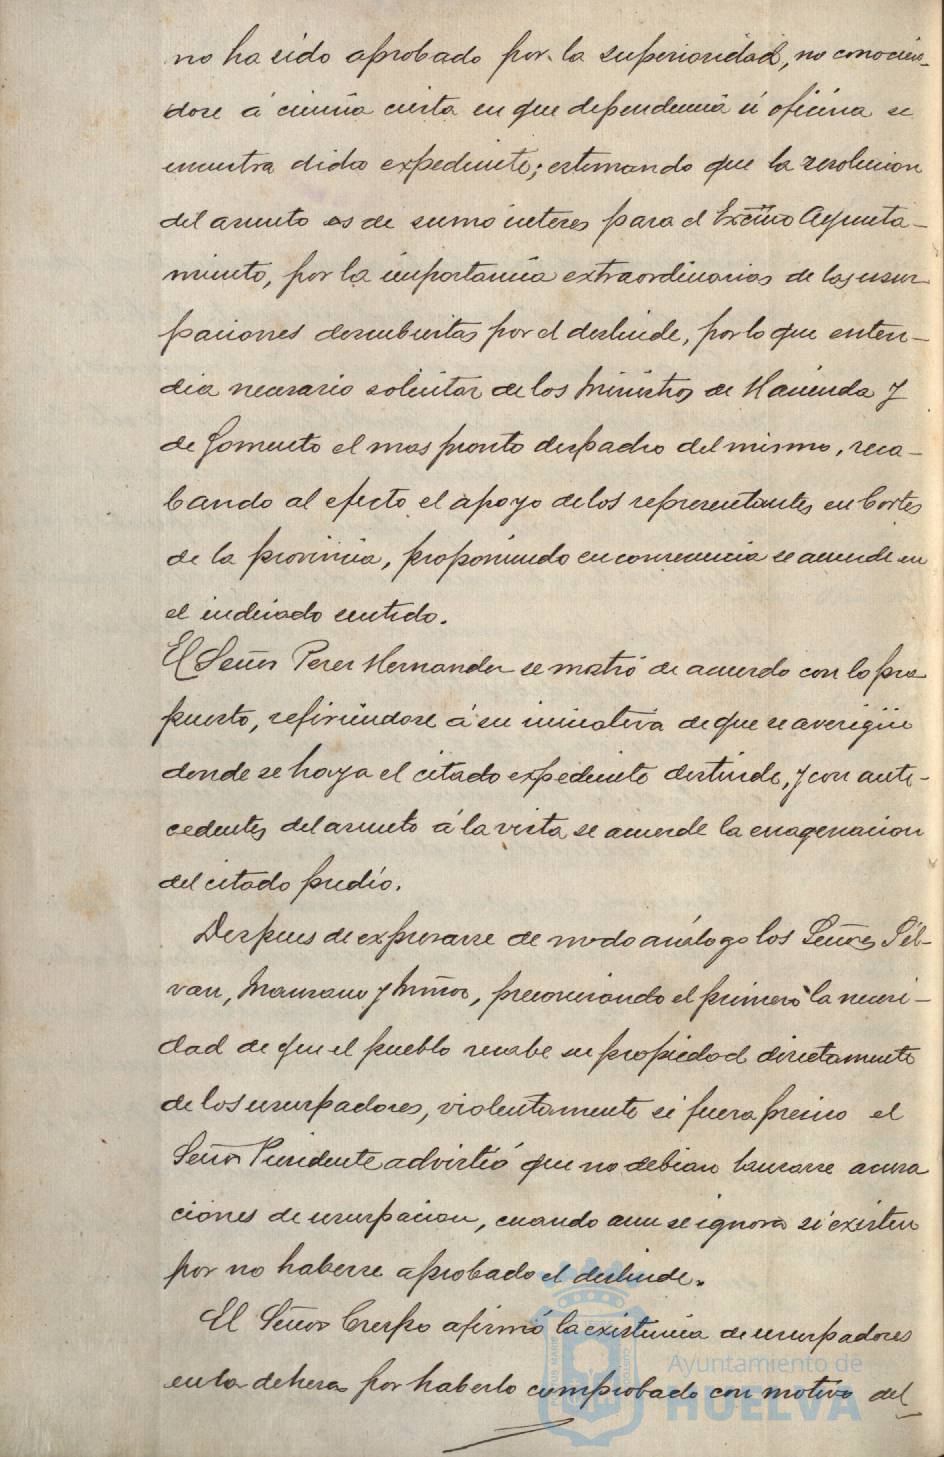 no ha sido aprobado por la superioridad, no conocien-
dose á ciencia cierta en que dependencia ú oficina se
encuentra dicho expediente; estimando que la resolucion
del asunto es de sumo interes para el Excmo Ayunta-
miento, por la importancia extraordinarias de las usur
paciones descubiertas por el deslinde, por lo que enten-
dia necesario solicitar de los Ministros de Hacienda y
de Fomento el mas pronto despacho del mismo, reca-
bando al efecto el apoyo de los representantes en Cortes
de la provincia, proponiendo en consecuencia se acuerde en
el indicado sentido.
El Señor Perez Hernandez se mostró de acuerdo con lo pro
puesto, refiriendose á su iniciativa de que se averigüe
donde se haya el citado expediente deslinde, y con ante-
cedentes del asunto á la vista se acuerde la enagenacion
del citado predio.
Despues de expresarse de modo análogo los Señores Gál-
van, Manzano y Muñoz, preconizando el primero la necesi-
dad de que el pueblo recabe su propiedad directamente
de los usurpadores, violentamente si fuera preciso el
Señor Presidente advirtió que no debian lanzarse acusa
ciones de usurpacion, cuando aun se ignora si existen
por no haberse aprobado el deslinde.
El Señor Crespo afirmó la existencia de usurpadores
en la dehesa por haberlo comprobado con motivo del
Ayuntamiento de
HUELVA